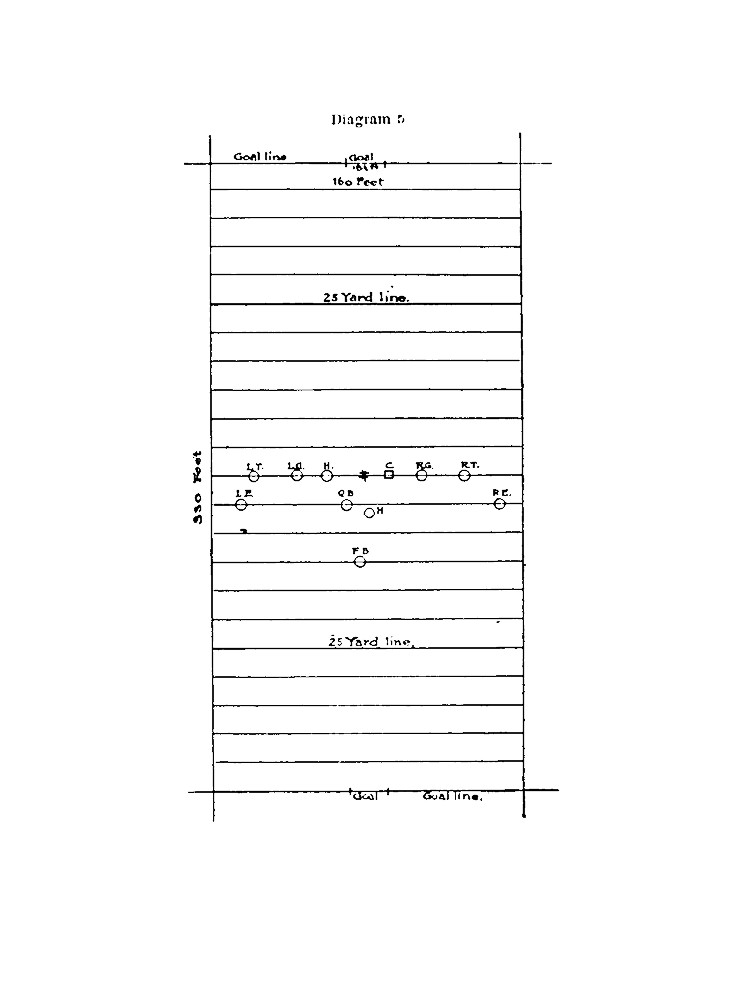 Diagram 5
Goal line Goal
160 Feet
25 Yard line.
330 Feet
L.T. L.G. H. C. R.G. R.T.
L.E. Q B R E.
H
F B
25 Yard line.
Goal Goal line.